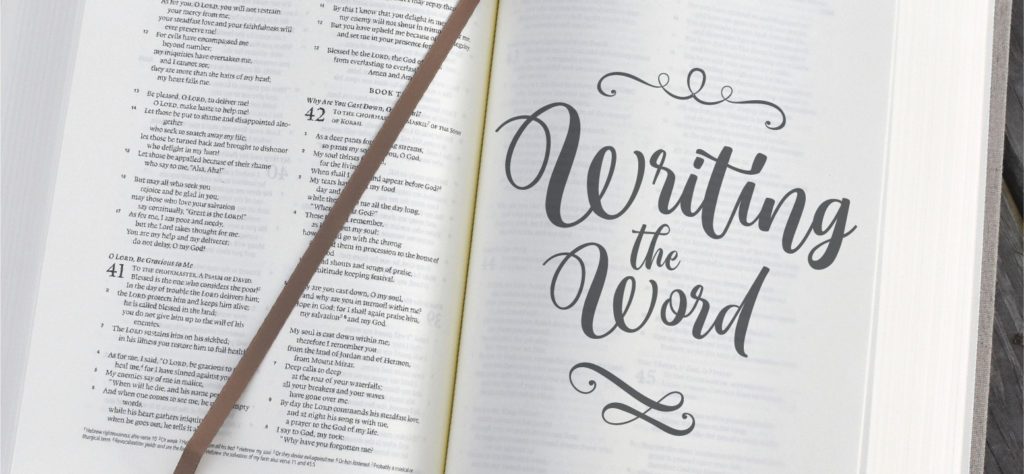 As for you, O LORD, you will not restrain
your mercy from me;
your steadfast love and your faithfulness will
ever preserve me!
12 For evils have encompassed me
beyond number;
my iniquities have overtaken me,
and I cannot see;
they are more than the hairs of my head;
my heart fails me.
13 Be pleased, O LORD, to deliver me!
O LORD, make haste to help me!
14 Let those be put to shame and disappointed alto-
gether
who seek to snatch away my life;
let those be turned back and brought to dishonor
who delight in my hurt!
15 Let those be appalled because of their shame
who say to me, "Aha, Aha!"
16 But may all who seek you
rejoice and be glad in you;
may those who love your salvation
say continually, "Great is the LORD!"
17 As for me, I am poor and needy,
but the Lord takes thought for me.
You are my help and my deliverer;
do not delay, O my God!
O LORD, Be Gracious to Me
41 TO THE CHOIRMASTER. A PSALM OF DAVID.
Blessed is the one who considers the poor!
In the day of trouble the LORD delivers him;
2 the LORD protects him and keeps him alive;
he is called blessed in the land;
you do not give him up to the will of his
enemies.
3 The LORD sustains him on his sickbed;
in his illness you restore him to full health
4 As for me, I said, "O LORD, be gracious to
heal me, for I have sinned against you
5 My enemies say of me in malice,
"When will he die, and his name
6 And when one comes to see me, he empty
words,
while his heart gathers
when he goes out, he tells it
11 By this I know that you delight in me;
my enemy will not shout in triumph
12 But you have upheld me because of
and set me in your presence
13 Blessed be the LORD, the God
from everlasting to
Amen and
BOOK
Why Are You Cast Down, O
42 TO THE CHOIRMASTER. OF THE SONS
OF KORAH.
As a deer pants streams,
so pants my you, O God.
2 My soul thirsts
for the living
When shall I appear before God?
3 My tears my food
day and
while me all the day long,
"Where God?"
4 These remember,
my soul:
how go with the throng
them in procession to the house of
shouts and songs of praise,
multitude keeping festival.
are you cast down, O my soul,
and why are you in turmoil within me?
Hope in God; for I shall again praise him,
my salvation and my God.
My soul is cast down within me;
therefore I remember you
from the land of Jordan and of Hermon,
from Mount Mizar.
7 Deep calls to deep
at the roar of your waterfalls;
all your breakers and your waves
have gone over me.
8 By day the LORD commands his steadfast love,
and at night his song is with me,
a prayer to the God of my life.
I say to God, my rock:
"Why have you forgotten me?
Writing
the
Word